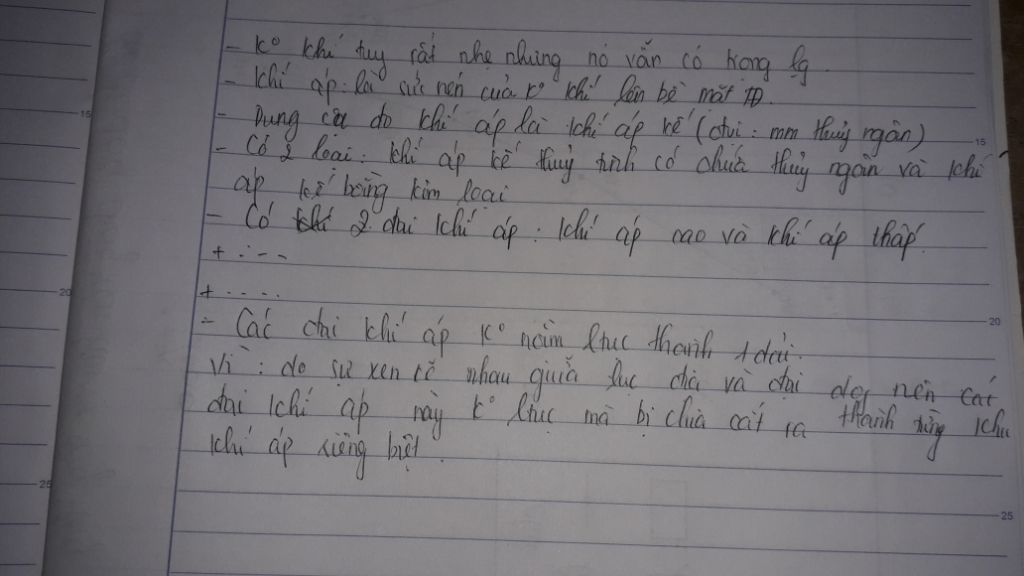 - K° khí tuy rất nhẹ nhưng nó vẫn có trọng lg
- Khí áp: là sức nén của k° khí lên bề mặt TĐ.
- Dụng cụ đo khí áp là khí áp kế (đvi: mm thuỷ ngân)
- Có 2 loại: khí áp kế thuỷ tinh có chứa thuỷ ngân và khí
áp kế bằng kim loại
- Có 2 đai khí áp: khí áp cao và khí áp thấp.
+ : - -
+ - - - -
- Các đai khí áp k° nằm ltục thành 1 dải.
Vì: do sự xen kẽ nhau giữa lục địa và đại dg nên các
đai khí áp này k° ltục mà bị chia cắt ra thành từng khu
khí áp riêng biệt.
15
20
25
15
20
25